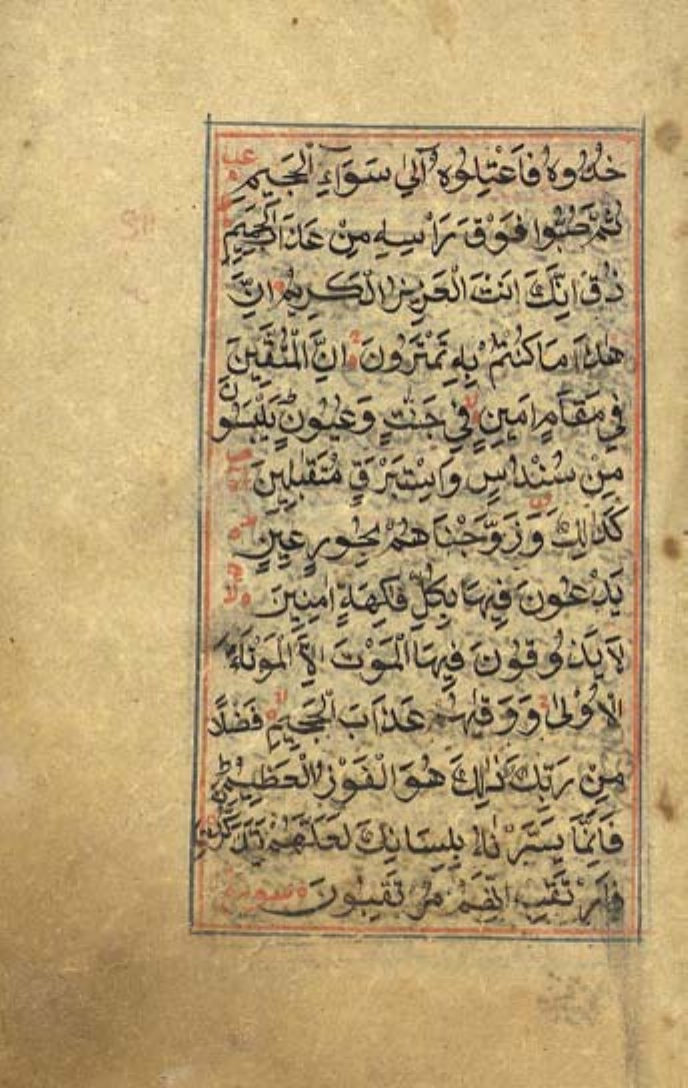 خُذُوهُ فَاعْتِلُوهُ اِلٰى سَوَاءِ الْجَحِيمِ
ثُمَّ صُبُّوا فَوْقَ رَاْسِهِ مِنْ عَذَابِ الْحَمِيمِ
ذُقْ اِنَّكَ اَنْتَ الْعَزِيزُ الْكَرِيمُ اِنَّ
هٰذَا مَا كُنْتُمْ بِهِ تَمْتَرُونَ اِنَّ الْمُتَّقِينَ
فِي مَقَامٍ اَمِينٍ فِي جَنّٰتٍ وَعُيُونٍ يَلْبَسُونَ
مِنْ سُنْدُسٍ وَاِسْتَبْرَقٍ مُتَقٰبِلِينَ
كَذٰلِكَ وَزَوَّجْنَاهُمْ بِحُورٍ عِينٍ
يَدْعُونَ فِيهَا بِكُلِّ فَاكِهَةٍ اٰمِنِينَ
لَا يَذُوقُونَ فِيهَا الْمَوْتَ اِلَّا الْمَوْتَةَ
الْاُوْلٰى وَوَقٰيهُمْ عَذَابَ الْجَحِيمِ فَضْلًا
مِنْ رَبِّكَ ذٰلِكَ هُوَ الْفَوْزُ الْعَظِيمُ
فَاِنَّمَا يَسَّرْنَاهُ بِلِسَانِكَ لَعَلَّهُمْ يَتَذَكَّرُونَ
فَارْتَقِبْ اِنَّهُمْ مُرْتَقِبُونَ سورة